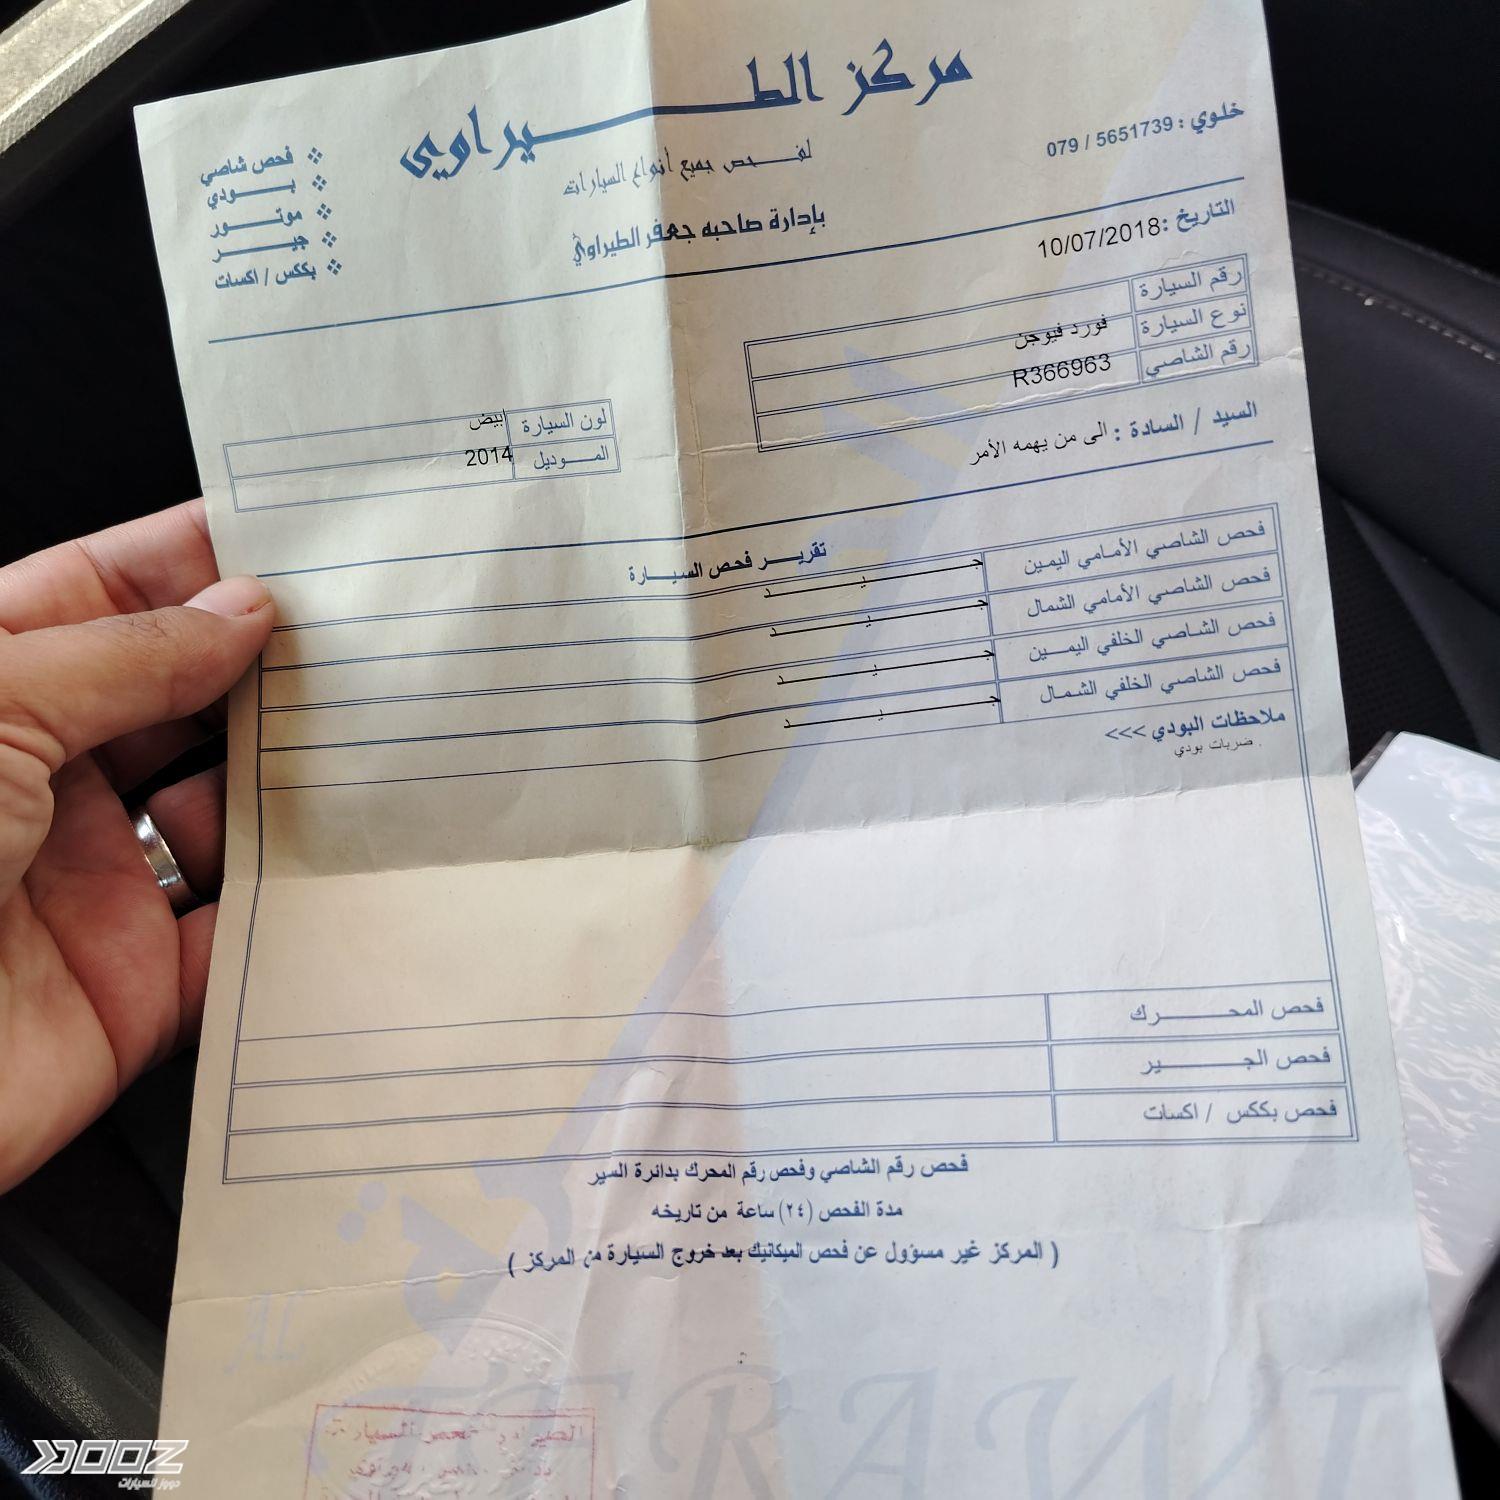 مركز الطيراوي
لفحص جميع أنواع السيارات
بإدارة صاحبه جعفر الطيراوي
خلوي : 5651739 / 079
فحص شاصي
بودي
موتور
جير
بككس / اكسات
التاريخ :10/07/2018
رقم السيارة
نوع السيارة فورد فيوجن
رقم الشاصي R366963
لون السيارة ابيض
الموديل 2014
السيد / السادة : الى من يهمه الأمر
تقرير فحص السيارة
فحص الشاصي الأمامي اليمين جيد
فحص الشاصي الأمامي الشمال جيد
فحص الشاصي الخلفي اليمين جيد
فحص الشاصي الخلفي الشمال جيد
ملاحظات البودي >>>
. ضربات بودي
فحص المحرك
فحص الجير
فحص بككس / اكسات
فحص رقم الشاصي وفحص رقم المحرك بدائرة السير
مدة الفحص (٢٤) ساعة من تاريخه
( المركز غير مسؤول عن فحص الميكانيك بعد خروج السيارة من المركز )
AL
TERAWI
DOOZ
دووز للسيارات